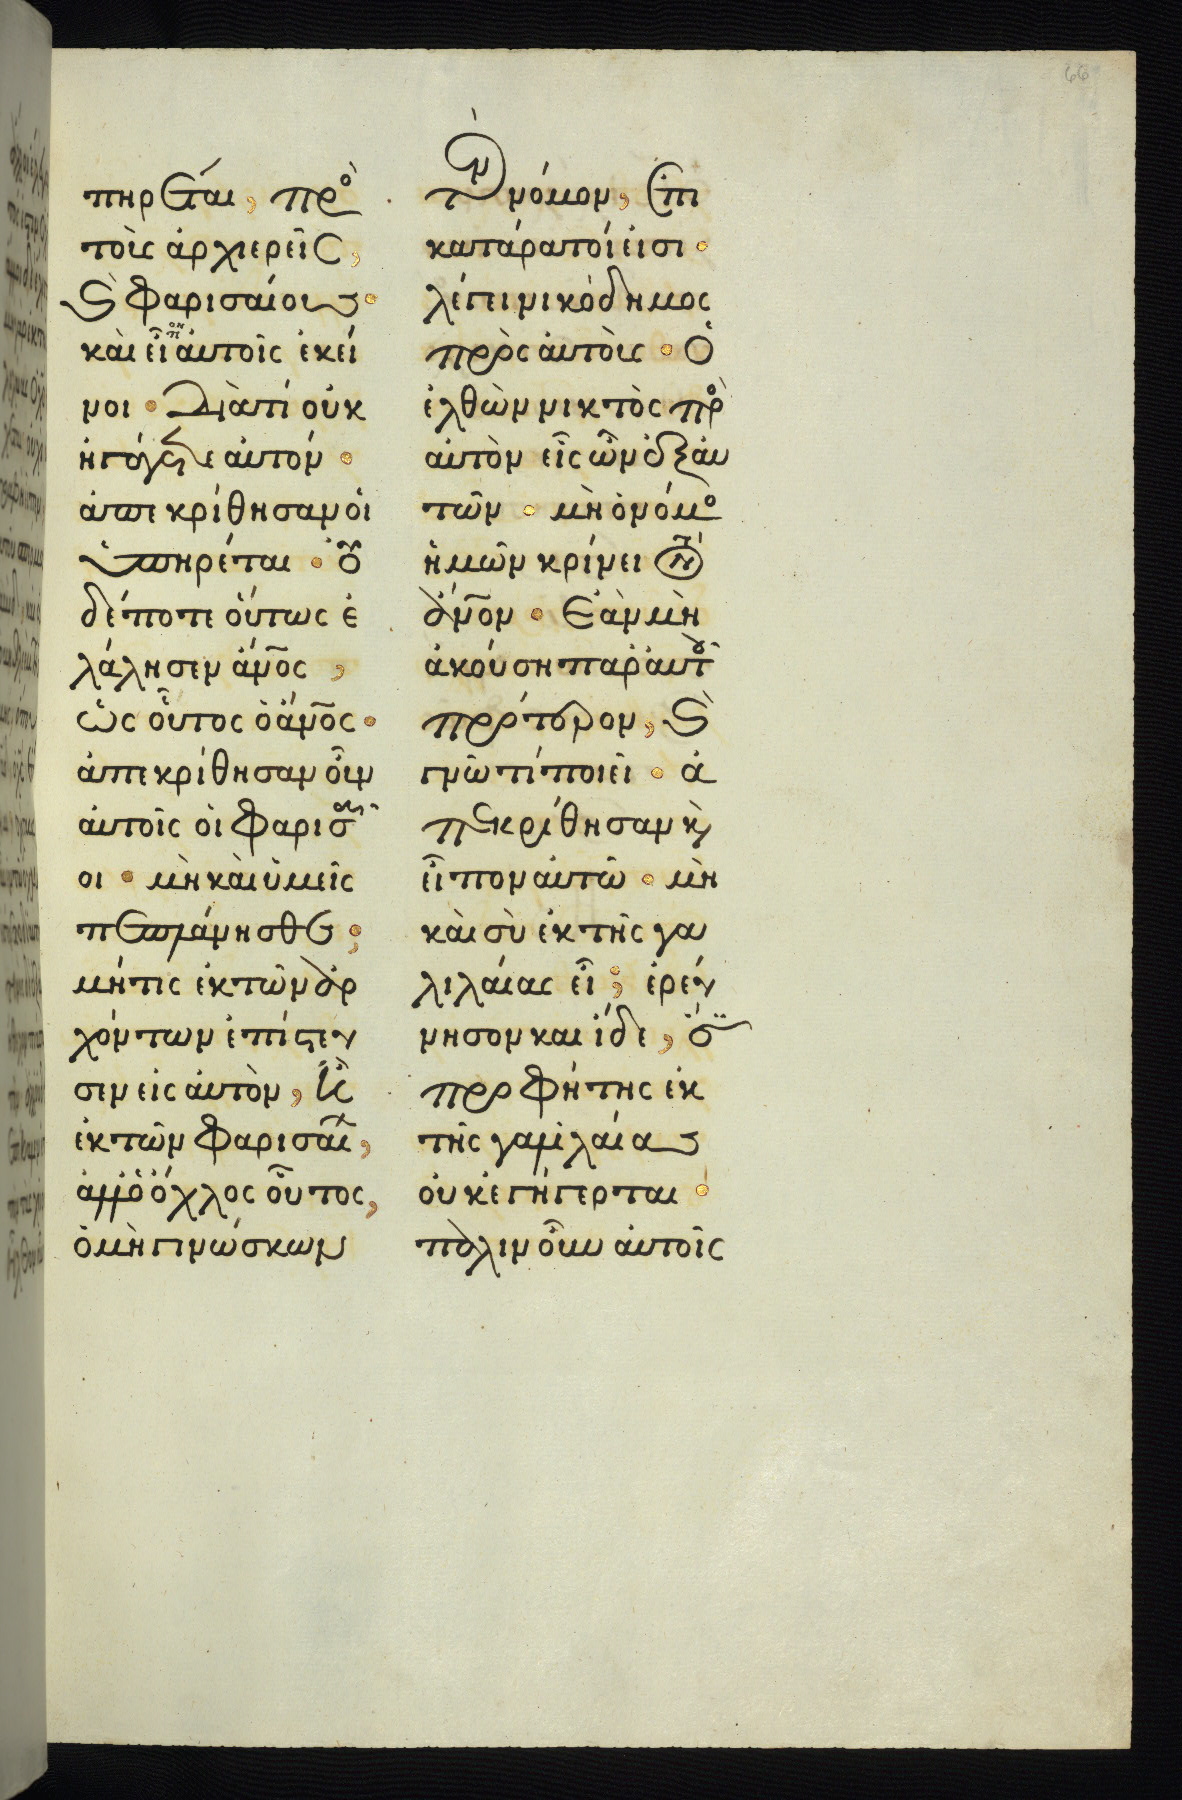 66
πηρέται, πρὸ
τοὺς ἀρχιερεῖς,
ϗ φαρισαίους·
καὶ εἶπον αὐτοῖς ἐκεῖ
νοι· Διατί οὐκ
ἠγάγετε αὐτόν·
ἀπεκρίθησαν οἱ
ὑπηρέται· οὐ
δέποτε οὕτως ἐ
λάλησεν ἄνος,
ὡς οὗτος ὁ ἄνος·
ἀπεκρίθησαν οὖν
αὐτοῖς οἱ φαρισαῖ
οι· μὴ καὶ ὑμεῖς
πεπλάνησθε;
μήτις ἐκ τῶν ἀρ
χόντων ἐπίστευ
σεν εἰς αὐτὸν, ἢ
ἐκ τῶν φαρισαί,
ἀλλ ὁ ὄχλος οὗτος,
ὁ μὴ γινώσκων
τὸν νόμον, ἐπι
κατάρατοί εἰσι·
λέγει νικόδημος
πρὸς αὐτοὺς· Ὁ
ἐλθὼν νυκτὸς πρὸ
αὐτὸν εἷς ὢν ἐξ αυ
τῶν· μὴ ὁ νόμο
ἡμῶν κρίνει τὸν
ἄνον· Ἐὰν μὴ
ἀκούση παρ αὐτοῦ
πρότερον, ϗ
γνῶ τί ποιεῖ· ἀ
πεκρίθησαν ϗ
εἶπον αὐτῶ· μὴ
καὶ σὺ ἐκ τῆς γα
λιλαίας εἶ; ἐρεύ
νησον καὶ ἴδε, ὅτι
προφήτης ἐκ
τῆς γαλιλαίας
οὐκ ἐγήγερται·
πάλιν οὖν αὐτοῖς